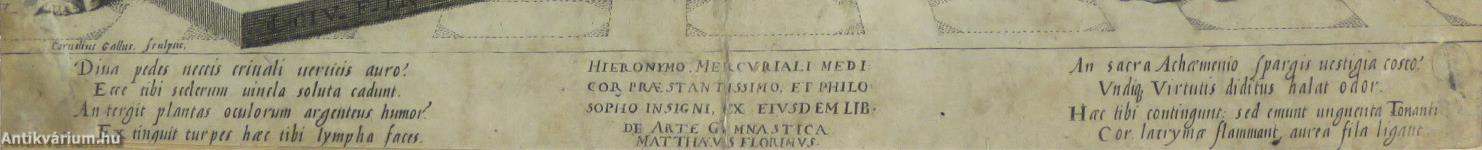 LCIV. F. F
Cornelius Gallus. sculpsit.
Diua pedes nectis crinali uerticis auro?
Ecce tibi scelerum uincla soluta cadunt.
An tergit plantas oculorum argenteus humor?
Ex tinguit turpes hæc tibi lympha faces.
HIERONYMO. MERCVRIALI MEDI
COR PRÆSTANTISSIMO, ET PHILO
SOPHO INSIGNI, EX EIVSDEM LIB.
DE ARTE GYMNASTICA
MATTHÆVS FLORIMVS.
An sacra Achæmenio spargis uestigia costo?
Vndiq; Virtutis diditus halat odor.
Hæc tibi contingunt: sed emunt unguenta Tonanti
Cor lacrymæ flammant, aurea fila ligant.
Antikvárium.hu